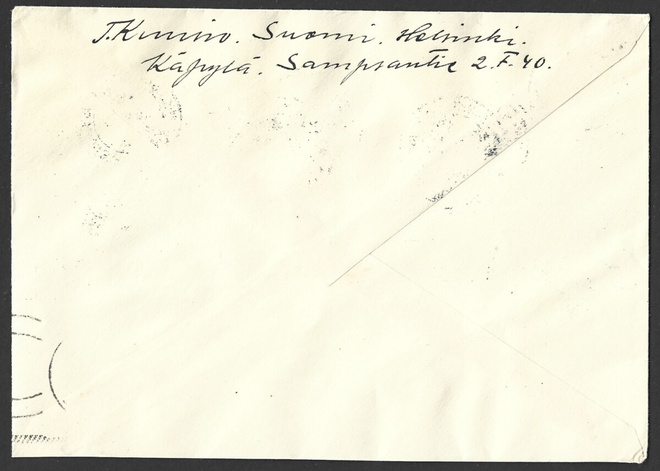 T. Kunino. Suomi. Helsinki.
Käpylä. Sampsantie 2.F.40.